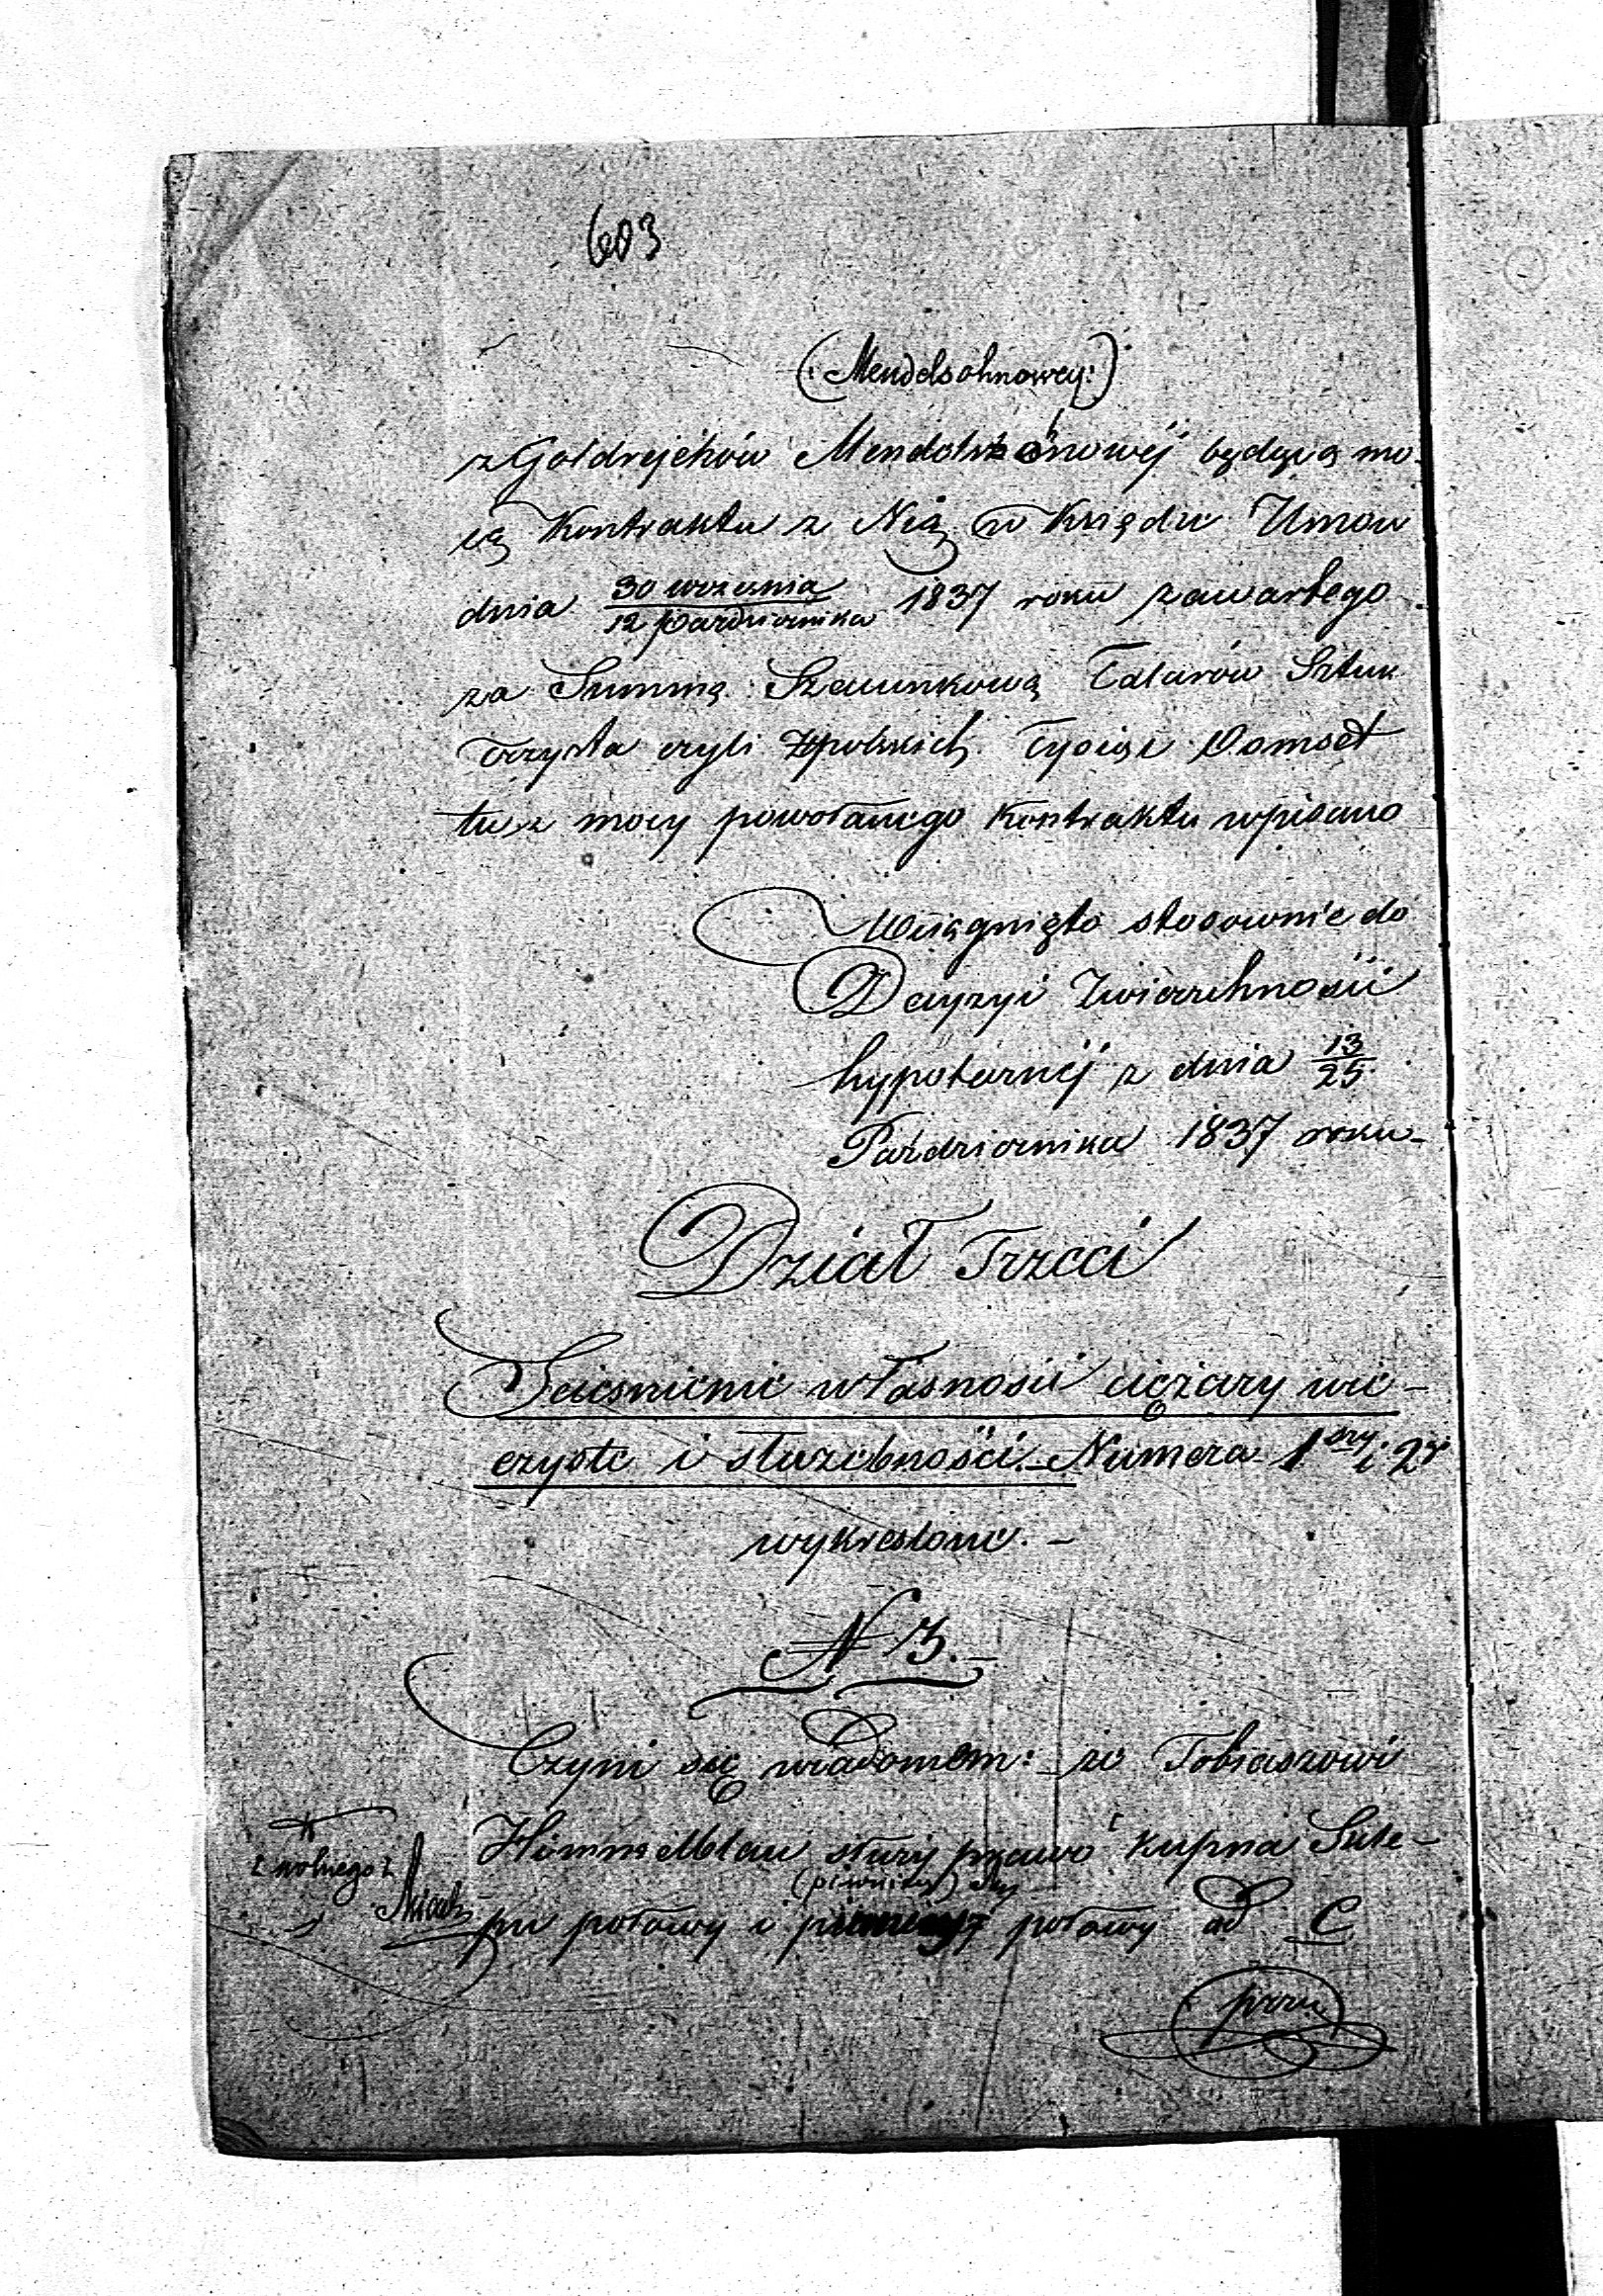 603
(:Mendelsohnowey:)
z Goldrejchów Mendelshonowéj będącą mo-
cą Kontraktu z Nią w Księdze Umow
dnia 30 września / 12 października 1837 roku zawartego
za Summę Szacunkową Talarów Sztuk
trzysta czyli Złpolskich Tysiąc Osmset
tu z mocy powołanego Kontraktu wpisano
Wciągnięto stosownie do
Decyzyi Zwierzchności
hypotecznéj z dnia 13/25
Października 1837 roku
Dział Trzeci
Scieśnienie własności ciężary wie-
czyste i służebności.- Numera 1szy i 2gi
wykreslone. -
N 3. -
Czyni się wiadomem: - że Tobiaszowi
wolnego
Himmelblau służy prawo kupna Skle-
(piwnicy)
pu połowy i połowy ad C